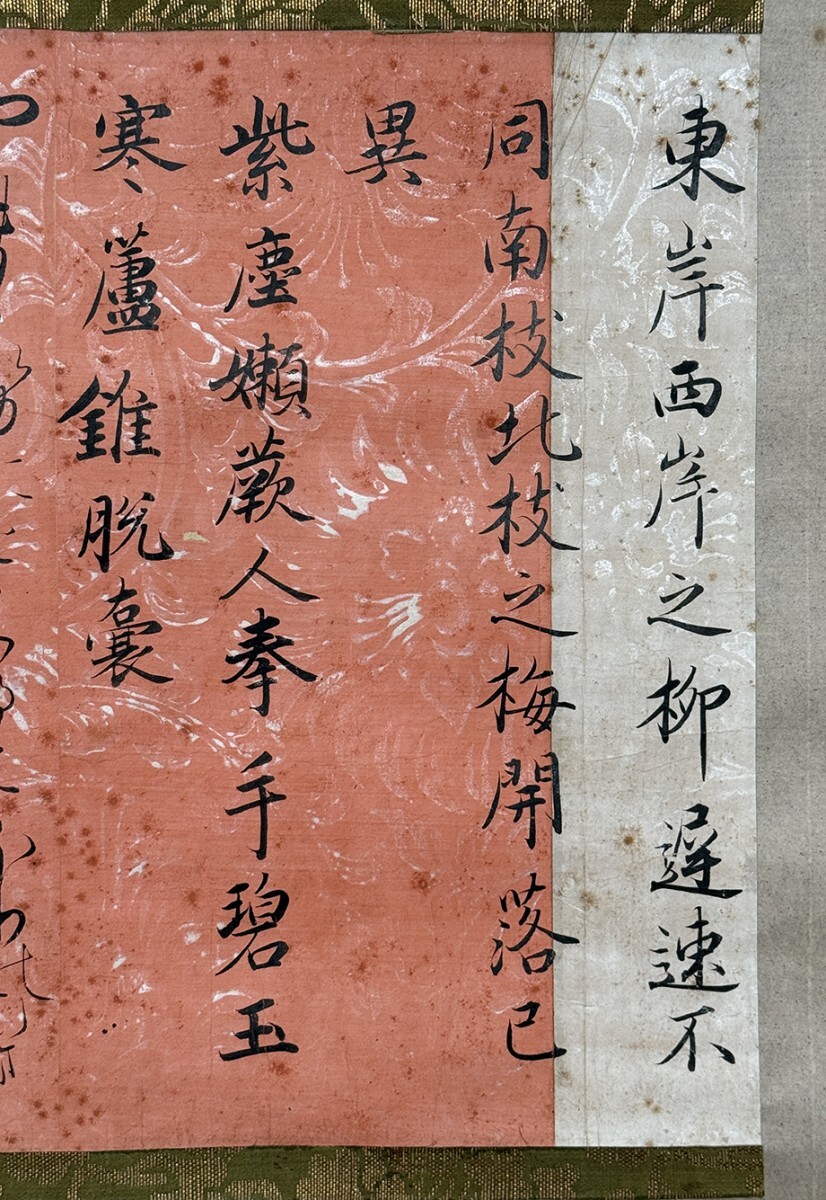 東岸西岸之柳遅速不
同南枝北枝之梅開落已
異
紫塵嬾蕨人拳手碧玉
寒蘆錐脱嚢